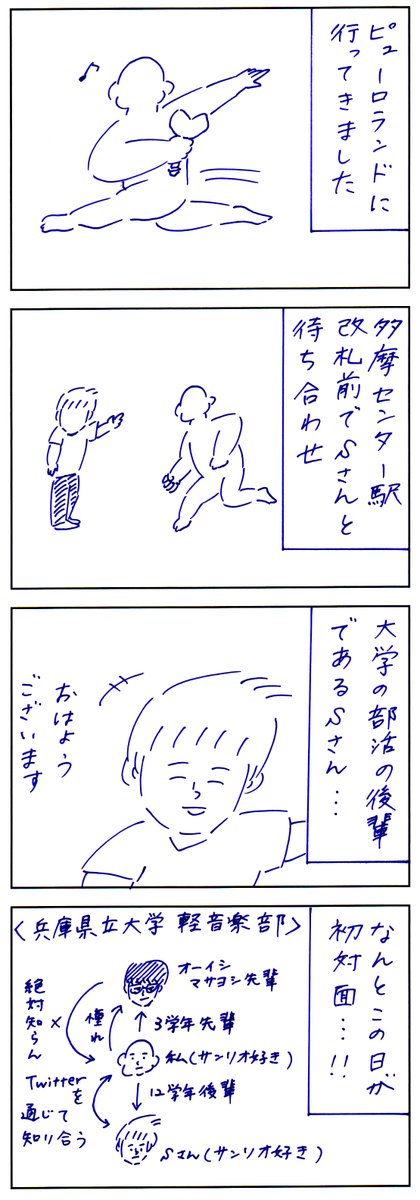 ピューロランドに
行ってきました
♪
多摩センター駅
改札前でSさんと
待ち合わせ
大学の部活の後輩
であるSさん…
おはよう
ございます
なんとこの日が
初対面…!!
<兵庫県立大学 軽音楽部>
オーイシ
マサヨシ先輩
絶対知らん
×
憧れ
3学年先輩
私(サンリオ好き)
Twitter
を
通じて
知り合う
12学年後輩
Sさん(サンリオ好き)